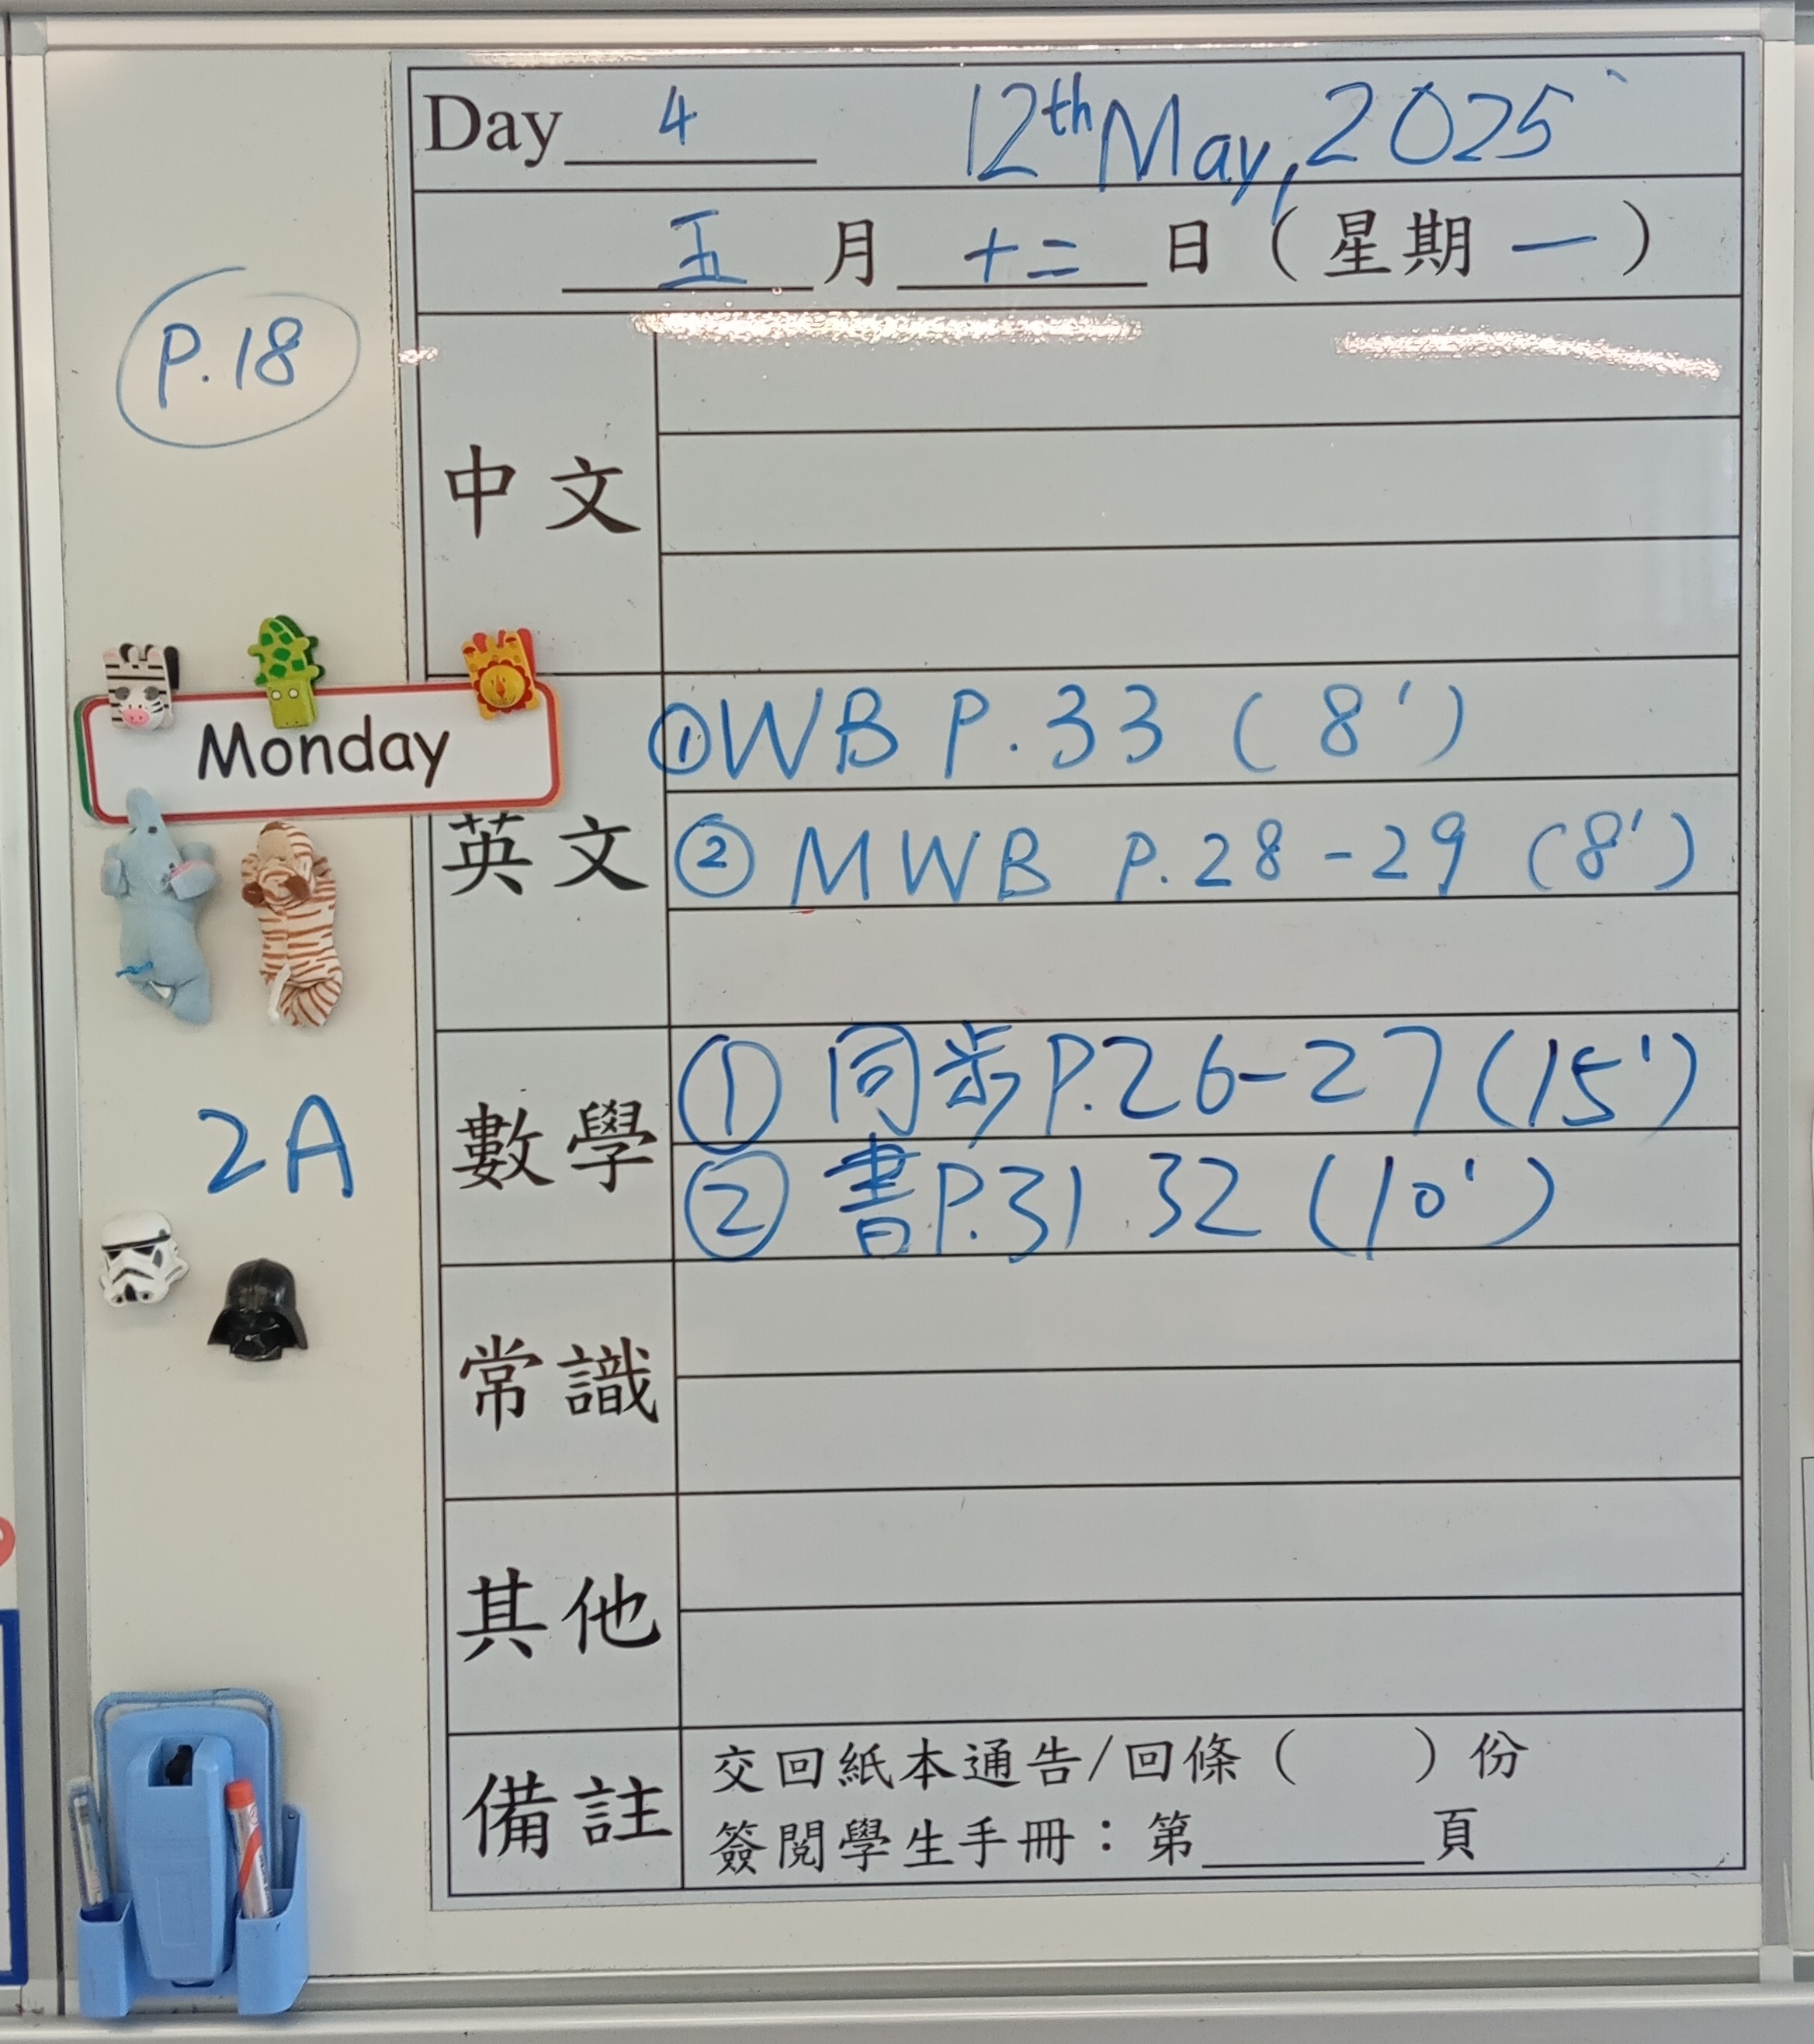 Day 4 12th May, 2025
五 月 十二 日 (星期 一)
P.18
中文
Monday
英文
① WB P.33 (8')
② MWB P.28-29 (8')
2A
數學
① 同步 P.26-27 (15')
② 書 P.31.32 (10')
常識
其他
備註
交回紙本通告/回條 ( ) 份
簽閱學生手冊：第______頁